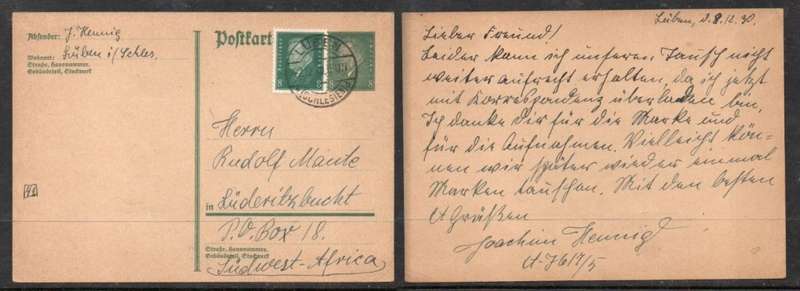 Absender: J. Hennig
Wohnort: Lüben i/Schles.
Straße, Hausnummer,
Gebäudeteil, Stockwerk
Postkarte
LÜBEN
(SCHLESIEN)
Herrn
Rudolf Mante
in Lüderitzbucht
P.O. Box 18.
Straße, Hausnummer,
Gebäudeteil, Stockwerk
Südwest-Africa
Lüben, d. 8.12.30.
Lieber Freund!
Leider kann ich unseren Tausch nicht
weiter aufrecht erhalten, da ich jetzt
mit Korrespondenz überladen bin.
Ich danke Dir für die Marke und
für die Aufnahmen. Vielleicht kön-
nen wir später wieder einmal
Marken tauschen. Mit den besten
Grüßen
Joachim Hennig